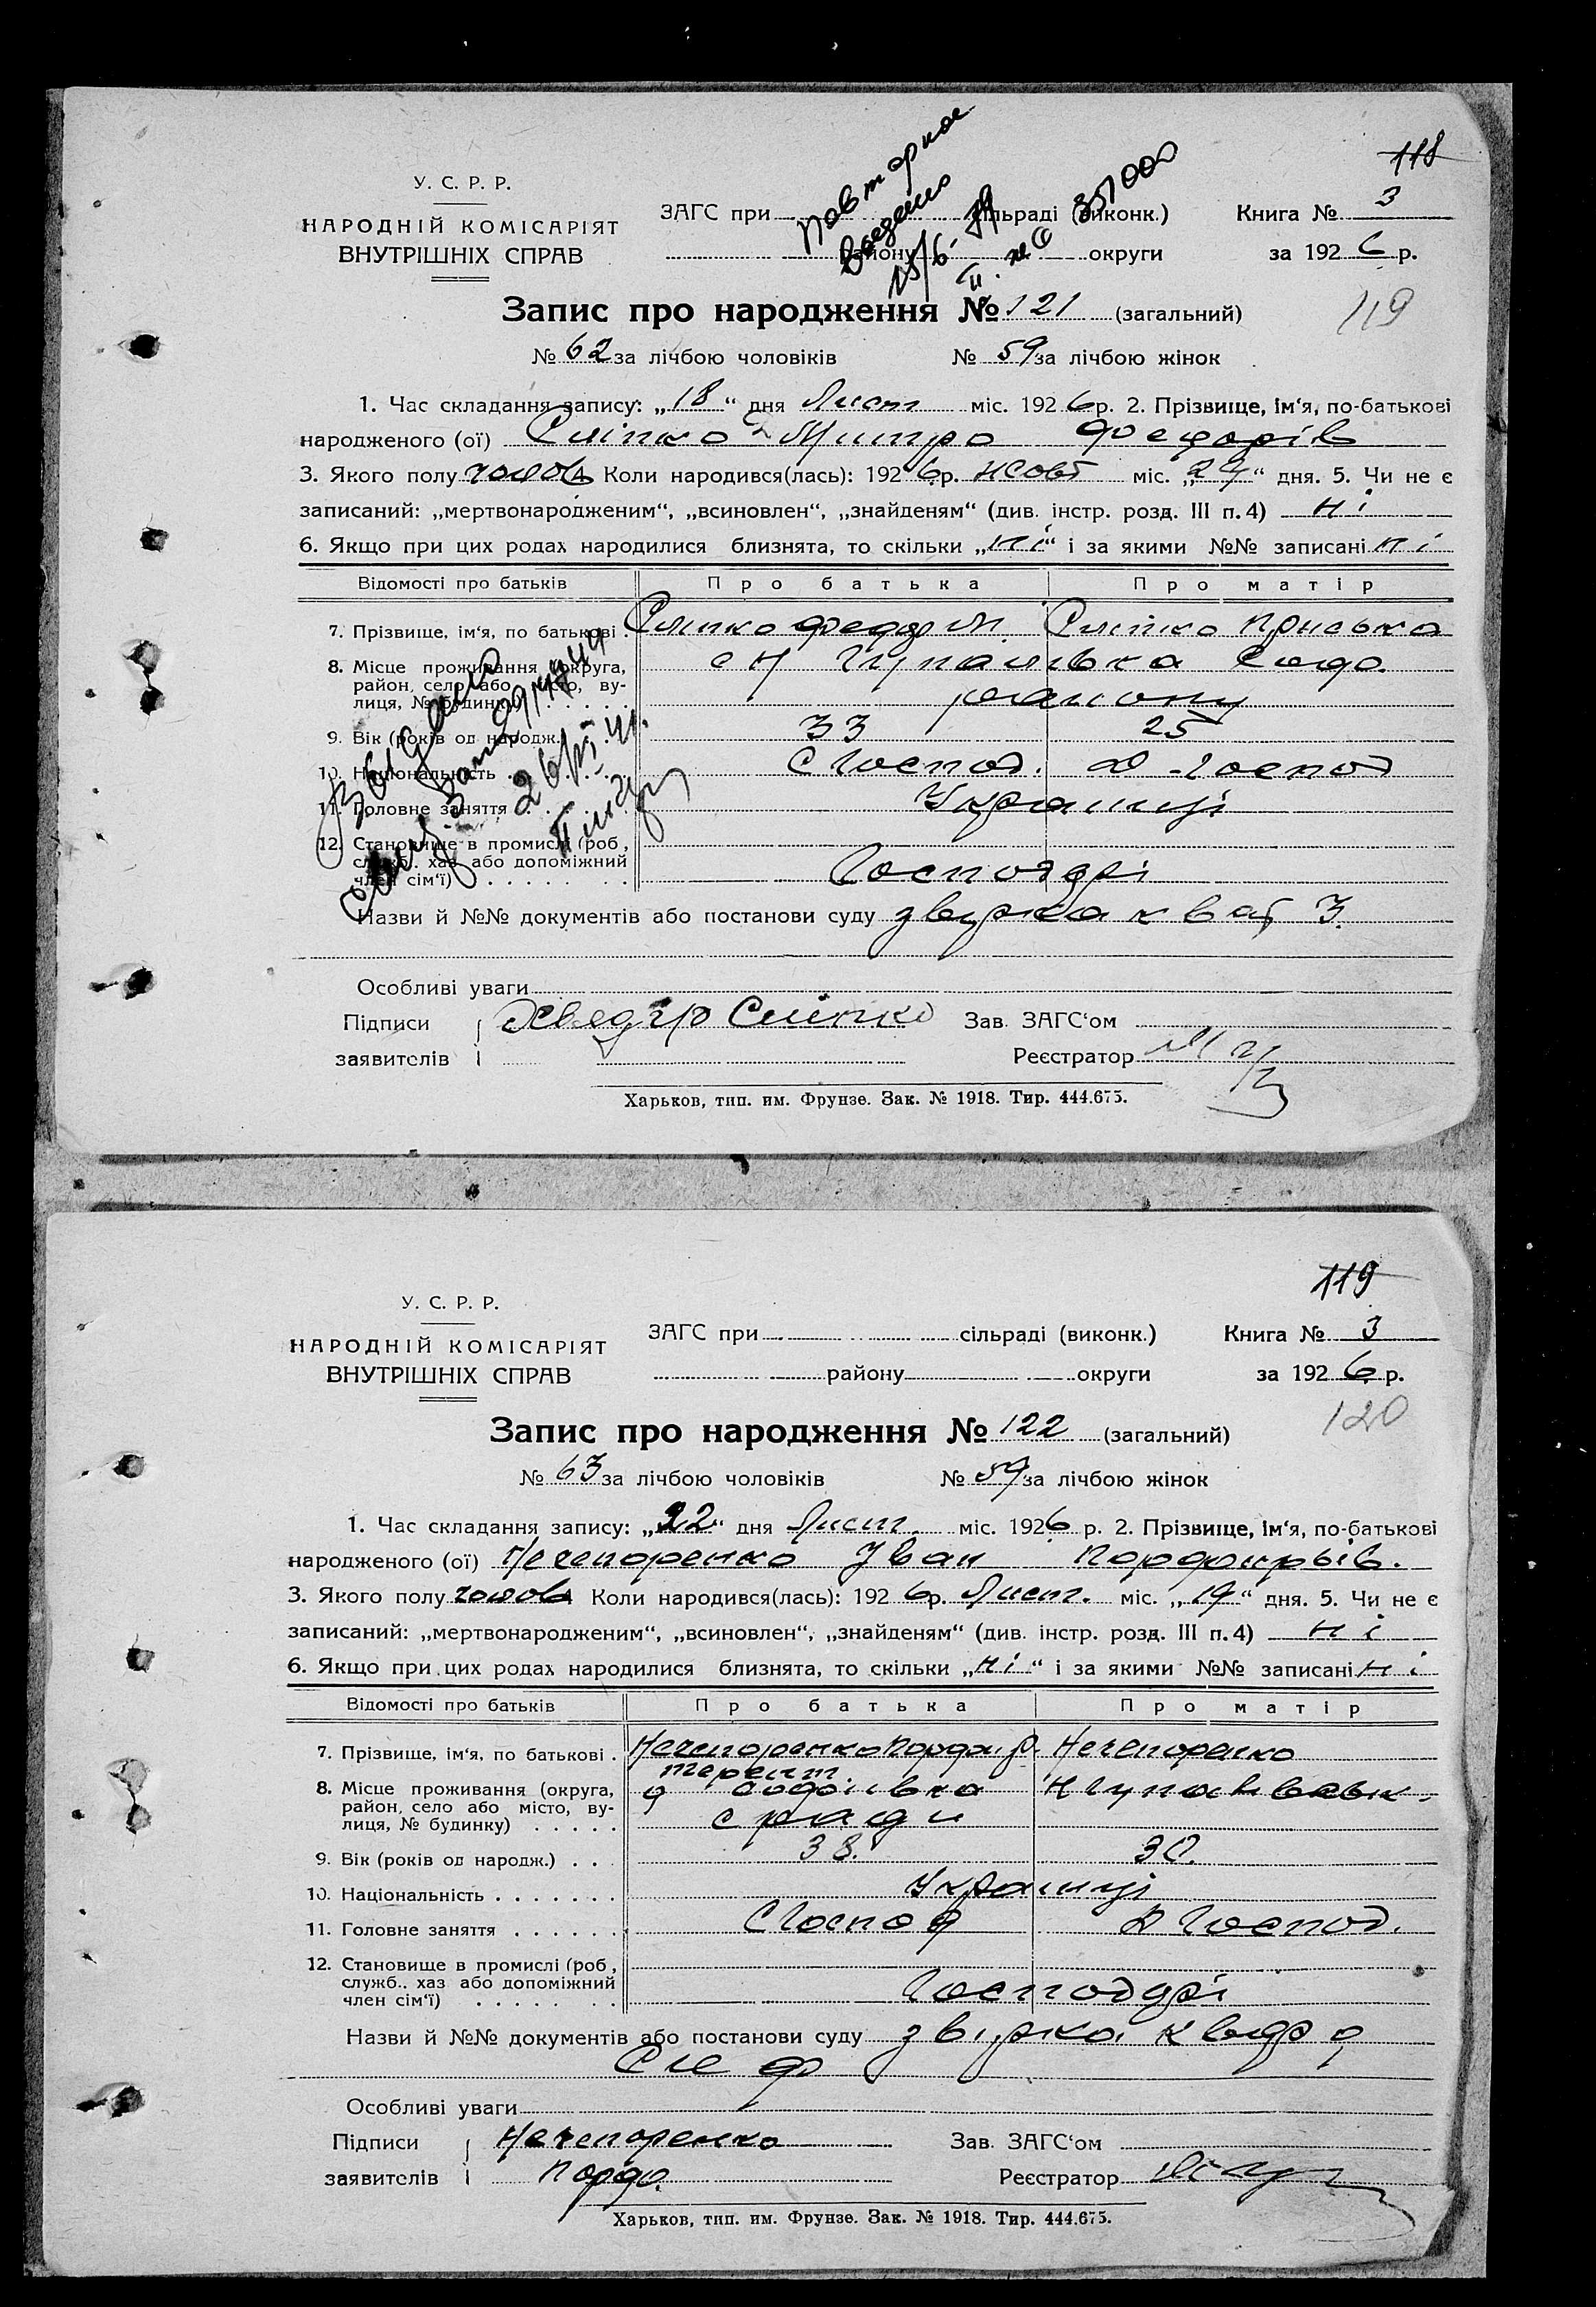 118
У. С. Р. Р.
НАРОДНІЙ КОМІСАРІЯТ
ВНУТРІШНІХ СПРАВ
Повторное
ЗАГС при сільраді (виконк.) Книга № 3
району округи за 1926 р.
Запис про народження № 121 (загальний)
119
№ 62 за лічбою чоловіків № 59 за лічбою жінок
1. Час складання запису: „18“ дня Лист міс. 1926 р. 2. Прізвище, ім‘я, по-батькові
народженого (ої) Сліпко Митро Федорів
3. Якого полу чолов 4. Коли народився(лась): 1926 р. Жовт міс. „27“ дня. 5. Чи не є
записаний: „мертвонародженим“, „всиновлен“, „знайденям“ (див. інстр. розд. III п. 4) ні
6. Якщо при цих родах народилися близнята, то скільки „ні“ і за якими №№ записані ні
Відомості про батьків Про батька Про матір
7. Прізвище, ім‘я, по батькові . Сліпко Федор М. Сліпко Пріська
8. Місце проживання (округа,
район, село або місто, ву-
лиця, № будинку)
району
9. Вік (років од народж.) 33 25
10. Національність С Господ. Д-Господ
11. Головне заняття Українці
12. Становище в промислі (роб,
служб.. хаз або допоміжний
член сім‘ї) Господарі
Назви й №№ документів або постанови суду звірка
Особливі уваги
Підписи Хведор Сліпко Зав. ЗАГС‘ом
заявителів Реєстратор
Харьков, тип. им. Фрунзе. Зак. № 1918. Тир. 444.675.
119
У. С. Р. Р.
НАРОДНІЙ КОМІСАРІЯТ
ВНУТРІШНІХ СПРАВ
ЗАГС при сільраді (виконк.) Книга № 3
району округи за 1926 р.
Запис про народження № 122 (загальний)
120
№ 63 за лічбою чоловіків № 59 за лічбою жінок
1. Час складання запису: „22“ дня Лист. міс. 1926 р. 2. Прізвище, ім‘я, по-батькові
народженого (ої) Нечепоренко Іван
3. Якого полу чолов 4 Коли народився(лась): 1926 р. Лист. міс. „19“ дня. 5. Чи не є
записаний: „мертвонародженим“, „всиновлен“, „знайденям“ (див. інстр. розд. III п. 4) ні
6. Якщо при цих родах народилися близнята, то скільки „ні“ і за якими №№ записані ні
Відомості про батьків Про батька Про матір
7. Прізвище, ім‘я, по батькові . Нечепоренко Нечепоренко
8. Місце проживання (округа,
район, село або місто, ву-
лиця, № будинку) . . . . .
9. Вік (років од народж.) . . . 38. 30.
10. Національність . . . . . . . Українці
11. Головне заняття . . . . . . С Господ Д Господ.
12. Становище в промислі (роб,
служб.. хаз або допоміжний
член сім‘ї) . . . . . . . . Господарі
Назви й №№ документів або постанови суду звірка
Особливі уваги
Підписи Нечепоренко Зав. ЗАГС‘ом
заявителів Порф. Реєстратор
Харьков, тип. им. Фрунзе. Зак. № 1918. Тир. 444.675.